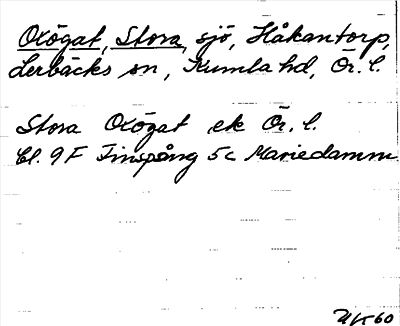 Oxögat, Stora, sjö, Håkantorp,
Lerbäcks sn, Kumla hd, Ör. l.
Stora Oxögat ek Ör. l.
Bl. 9F Finspång 5c Mariedamm
UK 60